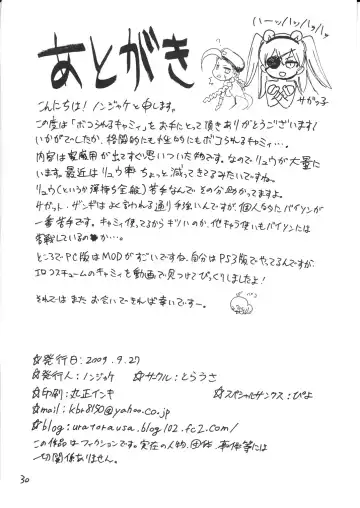 ハーッハッハッハッハッ
あとがき
サガっ子
こんたちは!ノンジャケと申します。
この度は「ボコられるキャミィ」をお手にとって頂きありがとうございます!
いかがでしたか、格闘的にも性的にもボコられるキャミィ…。
内容は家庭用が出てすぐ思いついた物です。なのでリュウが大量に
います。最近はリュウ ちょっと減ってきてるみたいですね。
リュウ(というか弾持ち全般)苦手なんでその分助かってますよ。
サガット、ザンギはよく言われる通り手強いんですが、個人的にバイソンが
一番苦手です。キャミィ使ってるからキツいのか、他キャラ使いもバイソンには
苦戦しているのか…。
ところでPC版はMODがすごいですね、自分はPS3版でやってるんですが、
エロコスチュームのキャミィを動画で見つけてびっくりしましたよ!
それではまたお会いできれば幸いですー。
☆発行日:2009.9.27
☆発行人:ノンジャケ ☆サークル:とらうさ
☆印刷:丸正インキ ☆スペシャルサンクス:ぴよ
☆mail:kbr8150@yahoo.co.jp
☆blog:uratorausa.blog102.fc2.com/
この作品はフィクションです。実在の人物、団体、事件等には
一切関係ありません。
30